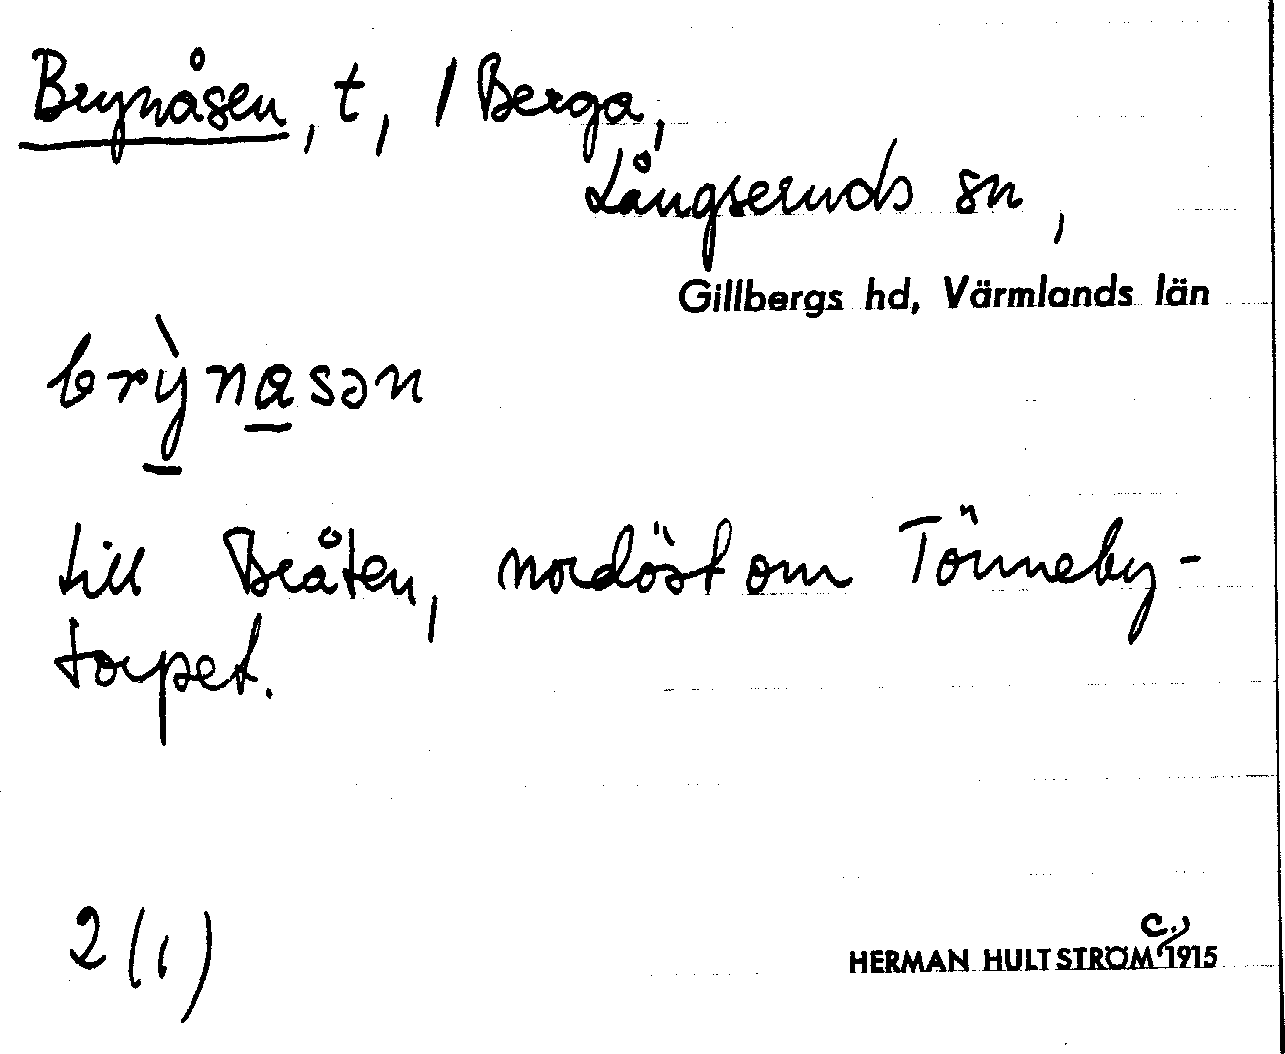 Brynåsen, t, / Berga,
Långseruds sn,
Gillbergs hd, Värmlands län
brỳnasən
till Bråten, nordöst om Tönneby-
torpet.
2 (1)
HERMAN HULTSTRÖM C., 1915